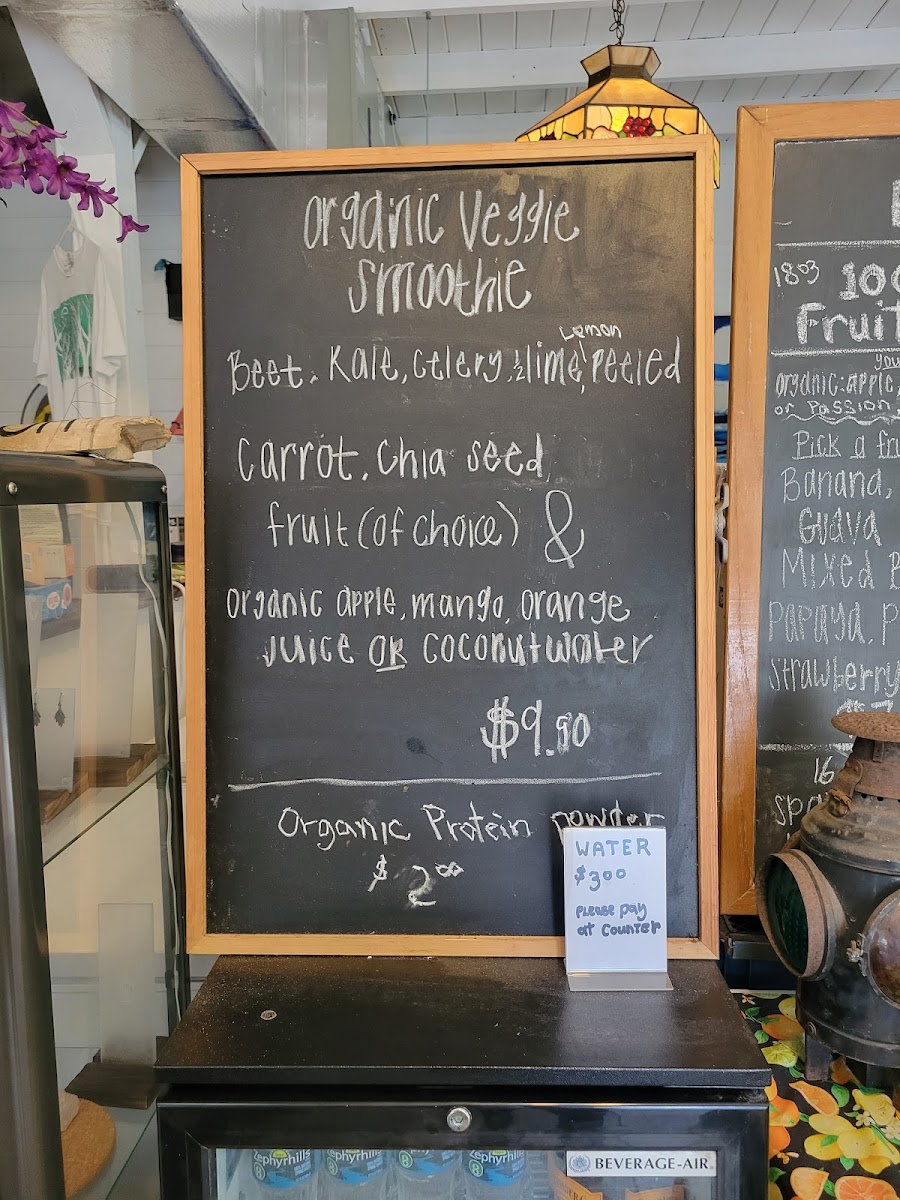 organic Veggie
Smoothie
Lemon
Beet, Kale, Celery, ½ lime, Peeled
Carrot, Chia seed
fruit (of choice) &
organic apple, mango, orange
juice OR coconut water
$9.50
Organic Protein powder
$2.00
WATER
$3.00
Please pay
at Counter
1803
100
Fruit
you
organic: apple,
or Passion
Pick a fru
Banana,
Guava
Mixed B
Papaya, P
Strawberry
$7
16
spa
Zephyrhills
Zephyrhills
Zephyrhills
BEVERAGE-AIR